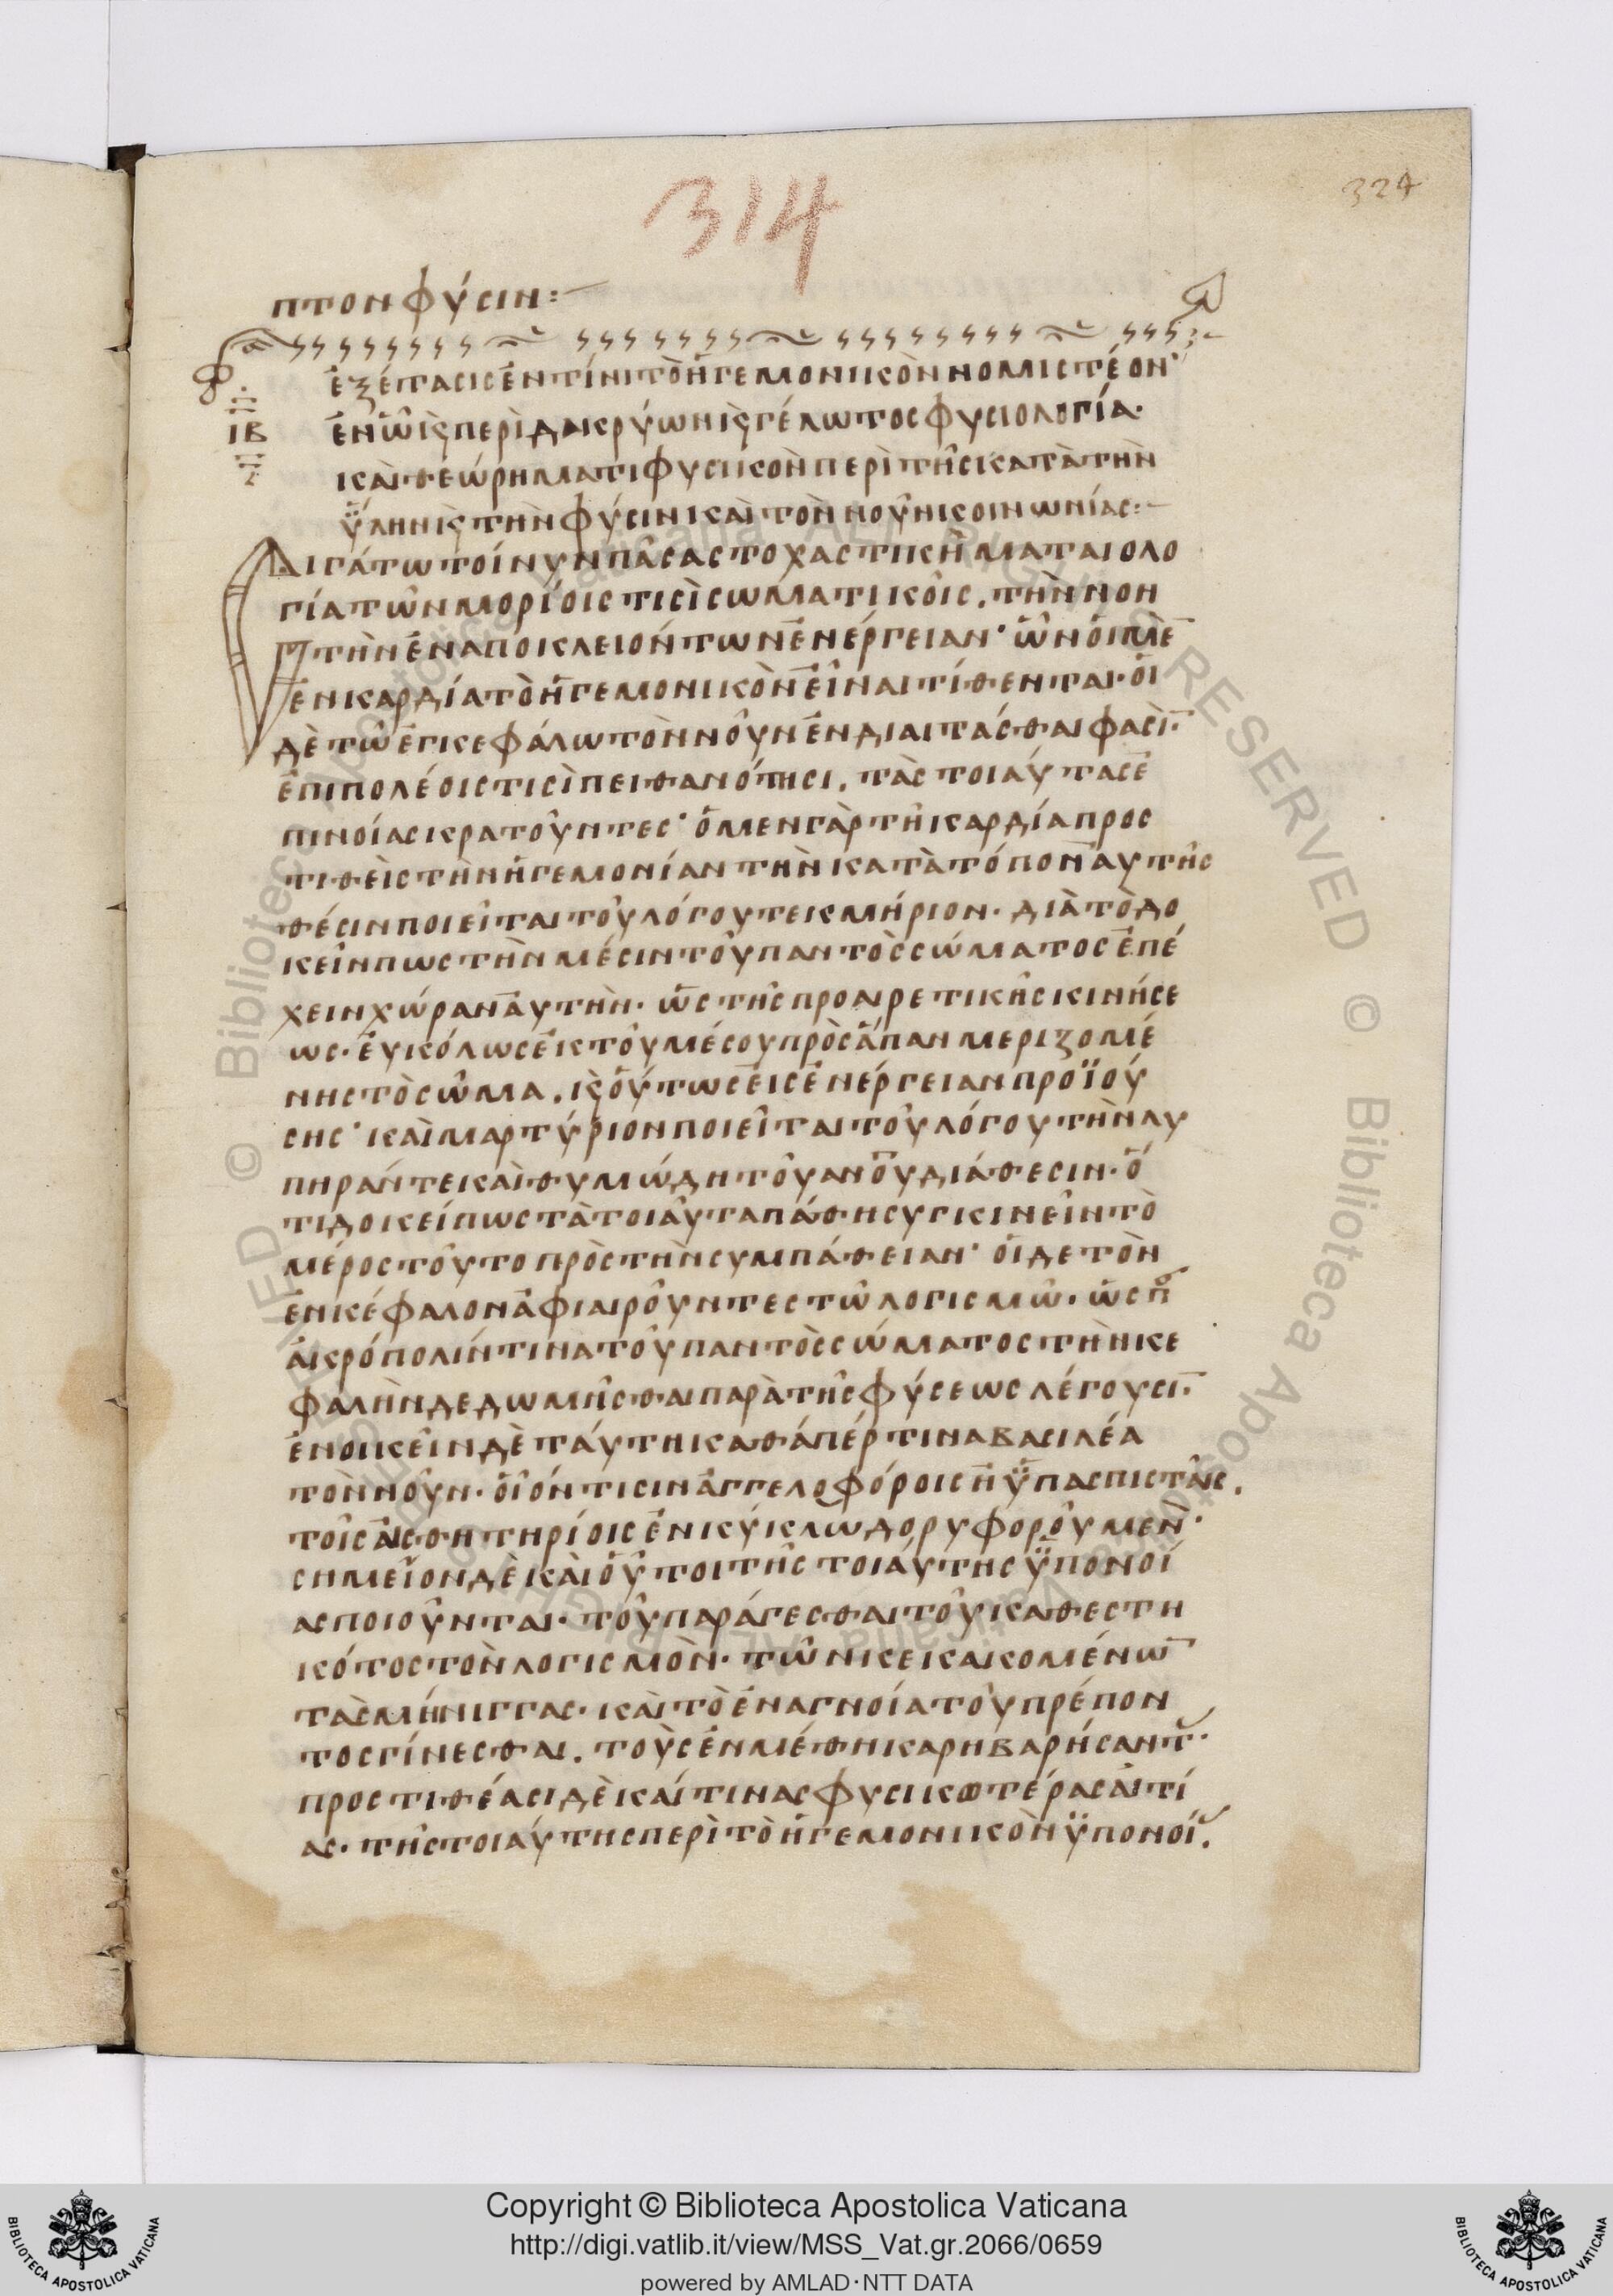 314
324
πτον φύσιν:–
ἐξέτασις ἐν τίνι τὸ ἡγεμονικὸν νομιστέον·
ΙΒ
ἐν ὧ κ̀ περὶ δακρύων κ̀ γέλωτος φυσιολογία·
καὶ θεώρημα τι φυσικὸν περὶ τῆς κατὰ τὴν
ὕλην κ̀ τὴν φύσιν καὶ τὸν νοῦν κοινωνίας:–
Σιγάτω τοίνυν πᾶσα στοχαστικὴ ματαιολο
γία τῶν μορίοις τισὶ σωματικοῖς. τὴν νοη
τὴν ἐναποκλειόντων ἐνέργειαν· ὧν οἱ μὲ̄
ἐν καρδία τὸ ἡγεμονικὸν εἶναι τίθενται· οἱ
δὲ τῶ ἐγκεφάλω τὸν νοῦν ἐνδιαιτάσθαι φασὶ̄·
ἐπιπολέοις τισὶ πειθανότησι. τὰς τοιαύτας ἐ
πινοίας κρατοῦντες· ὁ μεν γὰρ τῆ καρδία προσ
τιθεὶς τὴν ἡγεμονίαν τὴν κατὰ τόπον αυτῆς
θέσιν ποιεῖται τοῦ λόγου τεκμήριον· διὰ τὸ δο
κεῖν πως τὴν μέσιν τοῦ παντὸς σώματος ἐπέ
χειν χώραν αυτὴν· ὡς τῆς προαιρετικῆς κινήσε
ως· ἐυκόλως ἐκ τοῦ μέσου πρὸς ἅπαν μεριζομέ
νης τὸ σῶμα. κ̀ οὕτως εἰς ἐνέργειαν προϊού
σης· καὶ μαρτύριον ποιεῖται τοῦ λόγου τὴν λυ
πηράν τε καὶ θυμώδη τοῦ αν̅ο̅υ̅ διάθεσιν· ὅ
τι δοκεί πως τὰ τοιαῦτα πάθη συγκινεῖν τὸ
μέρος τοῦτο πρὸς τὴν συμπάθειαν· οἱ δε τὸν
ἐνκέφαλον ἀφιαιροῦντες τῶ λογισμῶ· ὥς π̅
ἀκρόπολίν τινα τοῦ παντὸς σώματος τὴν κε
φαλὴν δεδωμῆσθαι παρὰ τῆς φύσεως λέγουσι̅·
ἐνοικεῖν δὲ ταύτη καθάπέρ τινα βασιλέα
τὸν νοῦν· οἷόν τισιν ἀγγελοφόροις ἢ ὑπασπισταῖς.
τοῖς αἰσθητηρίοις ἐν κύκλω δορυφορούμεν̀·
σημεῖον δὲ καὶ οὗτοι τῆς τοιαύτης ὑπονοί
ας ποιοῦνται· τοῦ παράγεσθαι τοῦ καθεστη
κότος τὸν λογισμὸν· τῶν κεκακομένω̅
τὰς μήνιγγας· καὶ τὸ ἐν αγνοία τοῦ πρέπον
τος γίνεσθαι. τοὺς ἐν μέθη καρηβαρήσαντ·
προστιθέασι δὲ καί τινας φυσικωτέρας αἰτί
ας· τῆς τοιαύτης περὶ τὸ ἡγεμονικὸν ὑπονοί.
Copyright © Biblioteca Apostolica Vaticana
http://digi.vatlib.it/view/MSS_Vat.gr.2066/0659
powered by AMLAD·NTT DATA
BIBLIOTECA APOSTOLICA VATICANA
BIBLIOTECA APOSTOLICA VATICANA